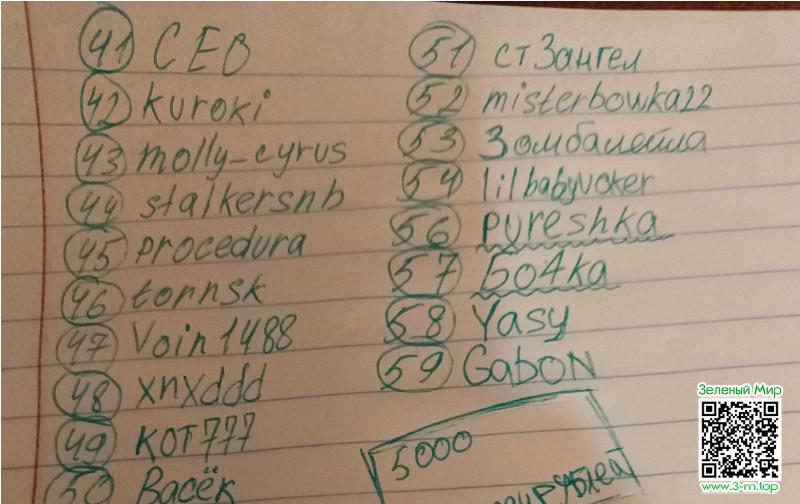 41 CEO
42 kuroki
43 molly-cyrus
44 stalkersnb
45 procedura
46 tornsk
47 Voin1488
48 xnxddd
49 КОТ777
50 Васёк
51 стЗангел
52 misterbowka22
53
54 lilbabyvoker
56 pyreshka
57 Бо4ka
58 Yasy
59 GaboN
5000
рублей
Зеленый Мир
www.3-m.top